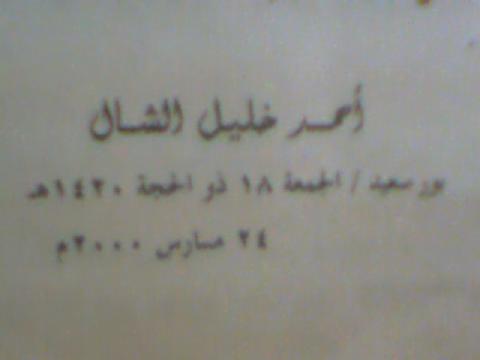 أحمد خليل الشال
بور سعيد / الجمعة ١٨ ذو الحجة ١٤٢٠هـ
٢٤ مارس ٢٠٠٠م